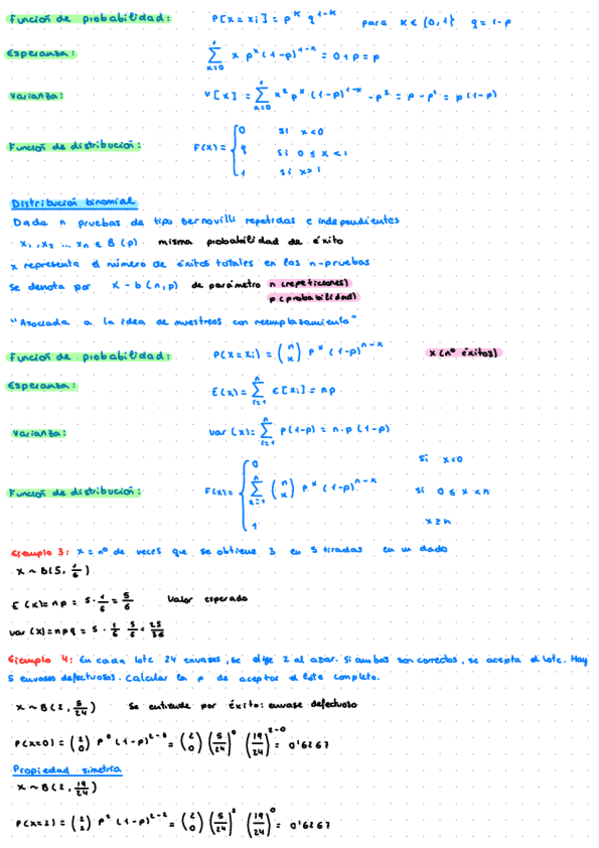 Función de probabilidad: P[X=xi] = p^k q^1-k para k ∈ {0,1} q=1-p
Esperanza: Σ_{x=0}^{1} x p^x (1-p)^{1-x} = 0+p = p
Varianza: V[X] = Σ_{x=0}^{1} x² p^x (1-p)^{1-x} - p² = p - p² = p(1-p)
Función de distribución: F(x) = { 0 si x<0
q si 0 ≤ x < 1
1 si x>1
Distribución binomial
Dada n pruebas de tipo Bernouilli repetidas e independientes
x1, x2 ... xn ∈ B(p) misma probabilidad de éxito
x representa el número de éxitos totales en las n-pruebas
Se denota por X - b(n,p) de parámetro n (repeticiones)
p (probabilidad)
"Asociada a la idea de muestreos con reemplazamiento"
Función de probabilidad: P(X=xi) = (n x) p^x (1-p)^{n-x} x (nº éxitos)
Esperanza: E(x) = Σ_{i=1}^{n} E[xi] = np
Varianza: var(x) = Σ_{i=1}^{n} p(1-p) = n·p(1-p)
Función de distribución: F(x) = { 0 si x<0
Σ_{x=1}^{n} (n x) p^x (1-p)^{n-x} si 0 ≤ x < n
1 x≥n
Ejemplo 3: x = nº de veces que se obtiene 3 en 5 tiradas en un dado
X ~ B(5, 1/6)
E(x) = np = 5 · 1/6 = 5/6 Valor esperado
var(x) = npq = 5 · 1/6 · 5/6 = 25/36
Ejemplo 4: En cada lote 24 envases, se elige 2 al azar. Si ambos son correctos, se acepta el lote. Hay
5 envases defectuosos. Calcular la p de aceptar el lote completo.
X ~ B(2, 5/24) Se entiende por éxito: envase defectuoso
P(X=0) = (2 0) p^0 (1-p)^{2-0} = (2 0) (5/24)^0 (19/24)^{2-0} = 0'6267
Propiedad simetría
X ~ B(2, 19/24)
P(X=2) = (2 2) p² (1-p)^{2-2} = (2 0) (5/24)^2 (19/24)^0 = 0'6267